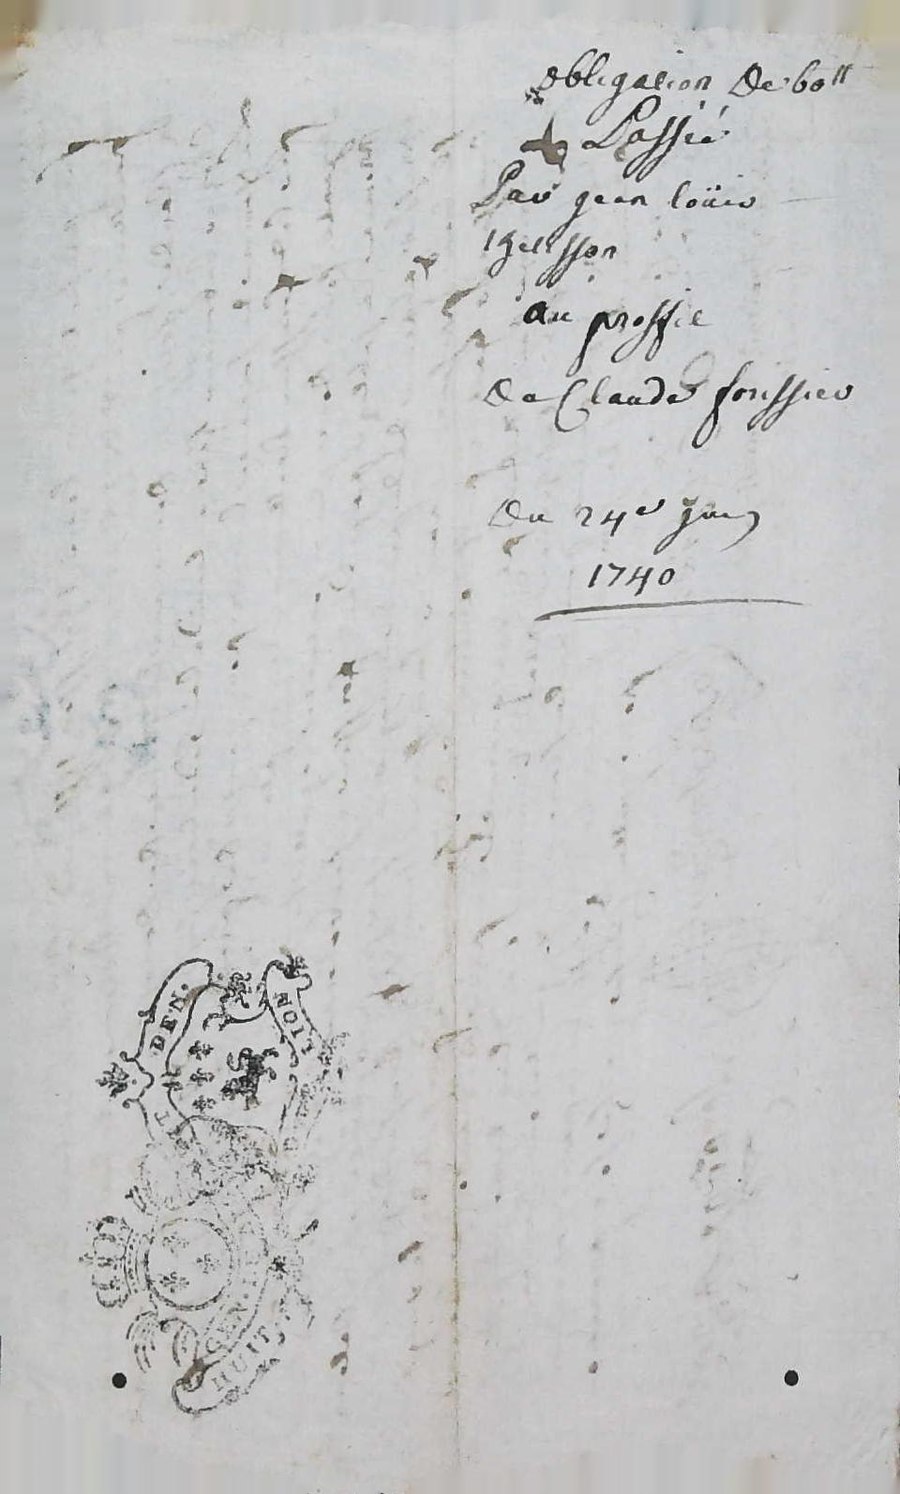 obligation De 60ᵗᵗ
Passée
Par jean loüis
au proffit
de Claude foussier
Du 24ᵉ
1740
DEN.
LION
GEN.
HUIT